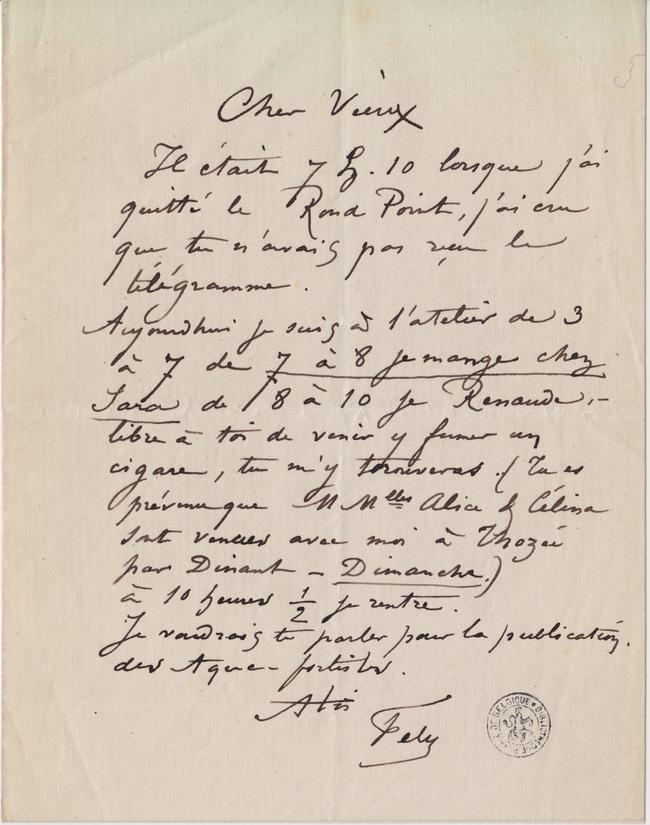 Cher Vieux
Il était 7 h. 10 lorsque j'ai
quitté le Rond Point, j'ai cru
que tu n'avais pas reçu le
télégramme.
Aujourdhui je suis à l'atelier de 3
à 7 de 7 à 8 je mange chez
Sara de 8 à 10 je Renaude,-
libre à toi de venir y fumer un
cigare, tu m'y trouveras. (Tu es
prévenu que MMelles Alice & Célina
sont venues avec moi à Thozée
par Dinant - Dimanche.)
à 10 heures 1/2 je rentre.
Je voudrais te parler pour la publication
des Aqua-fortistes.
Fely
BIBLIOTHEQUE DE BELGIQUE